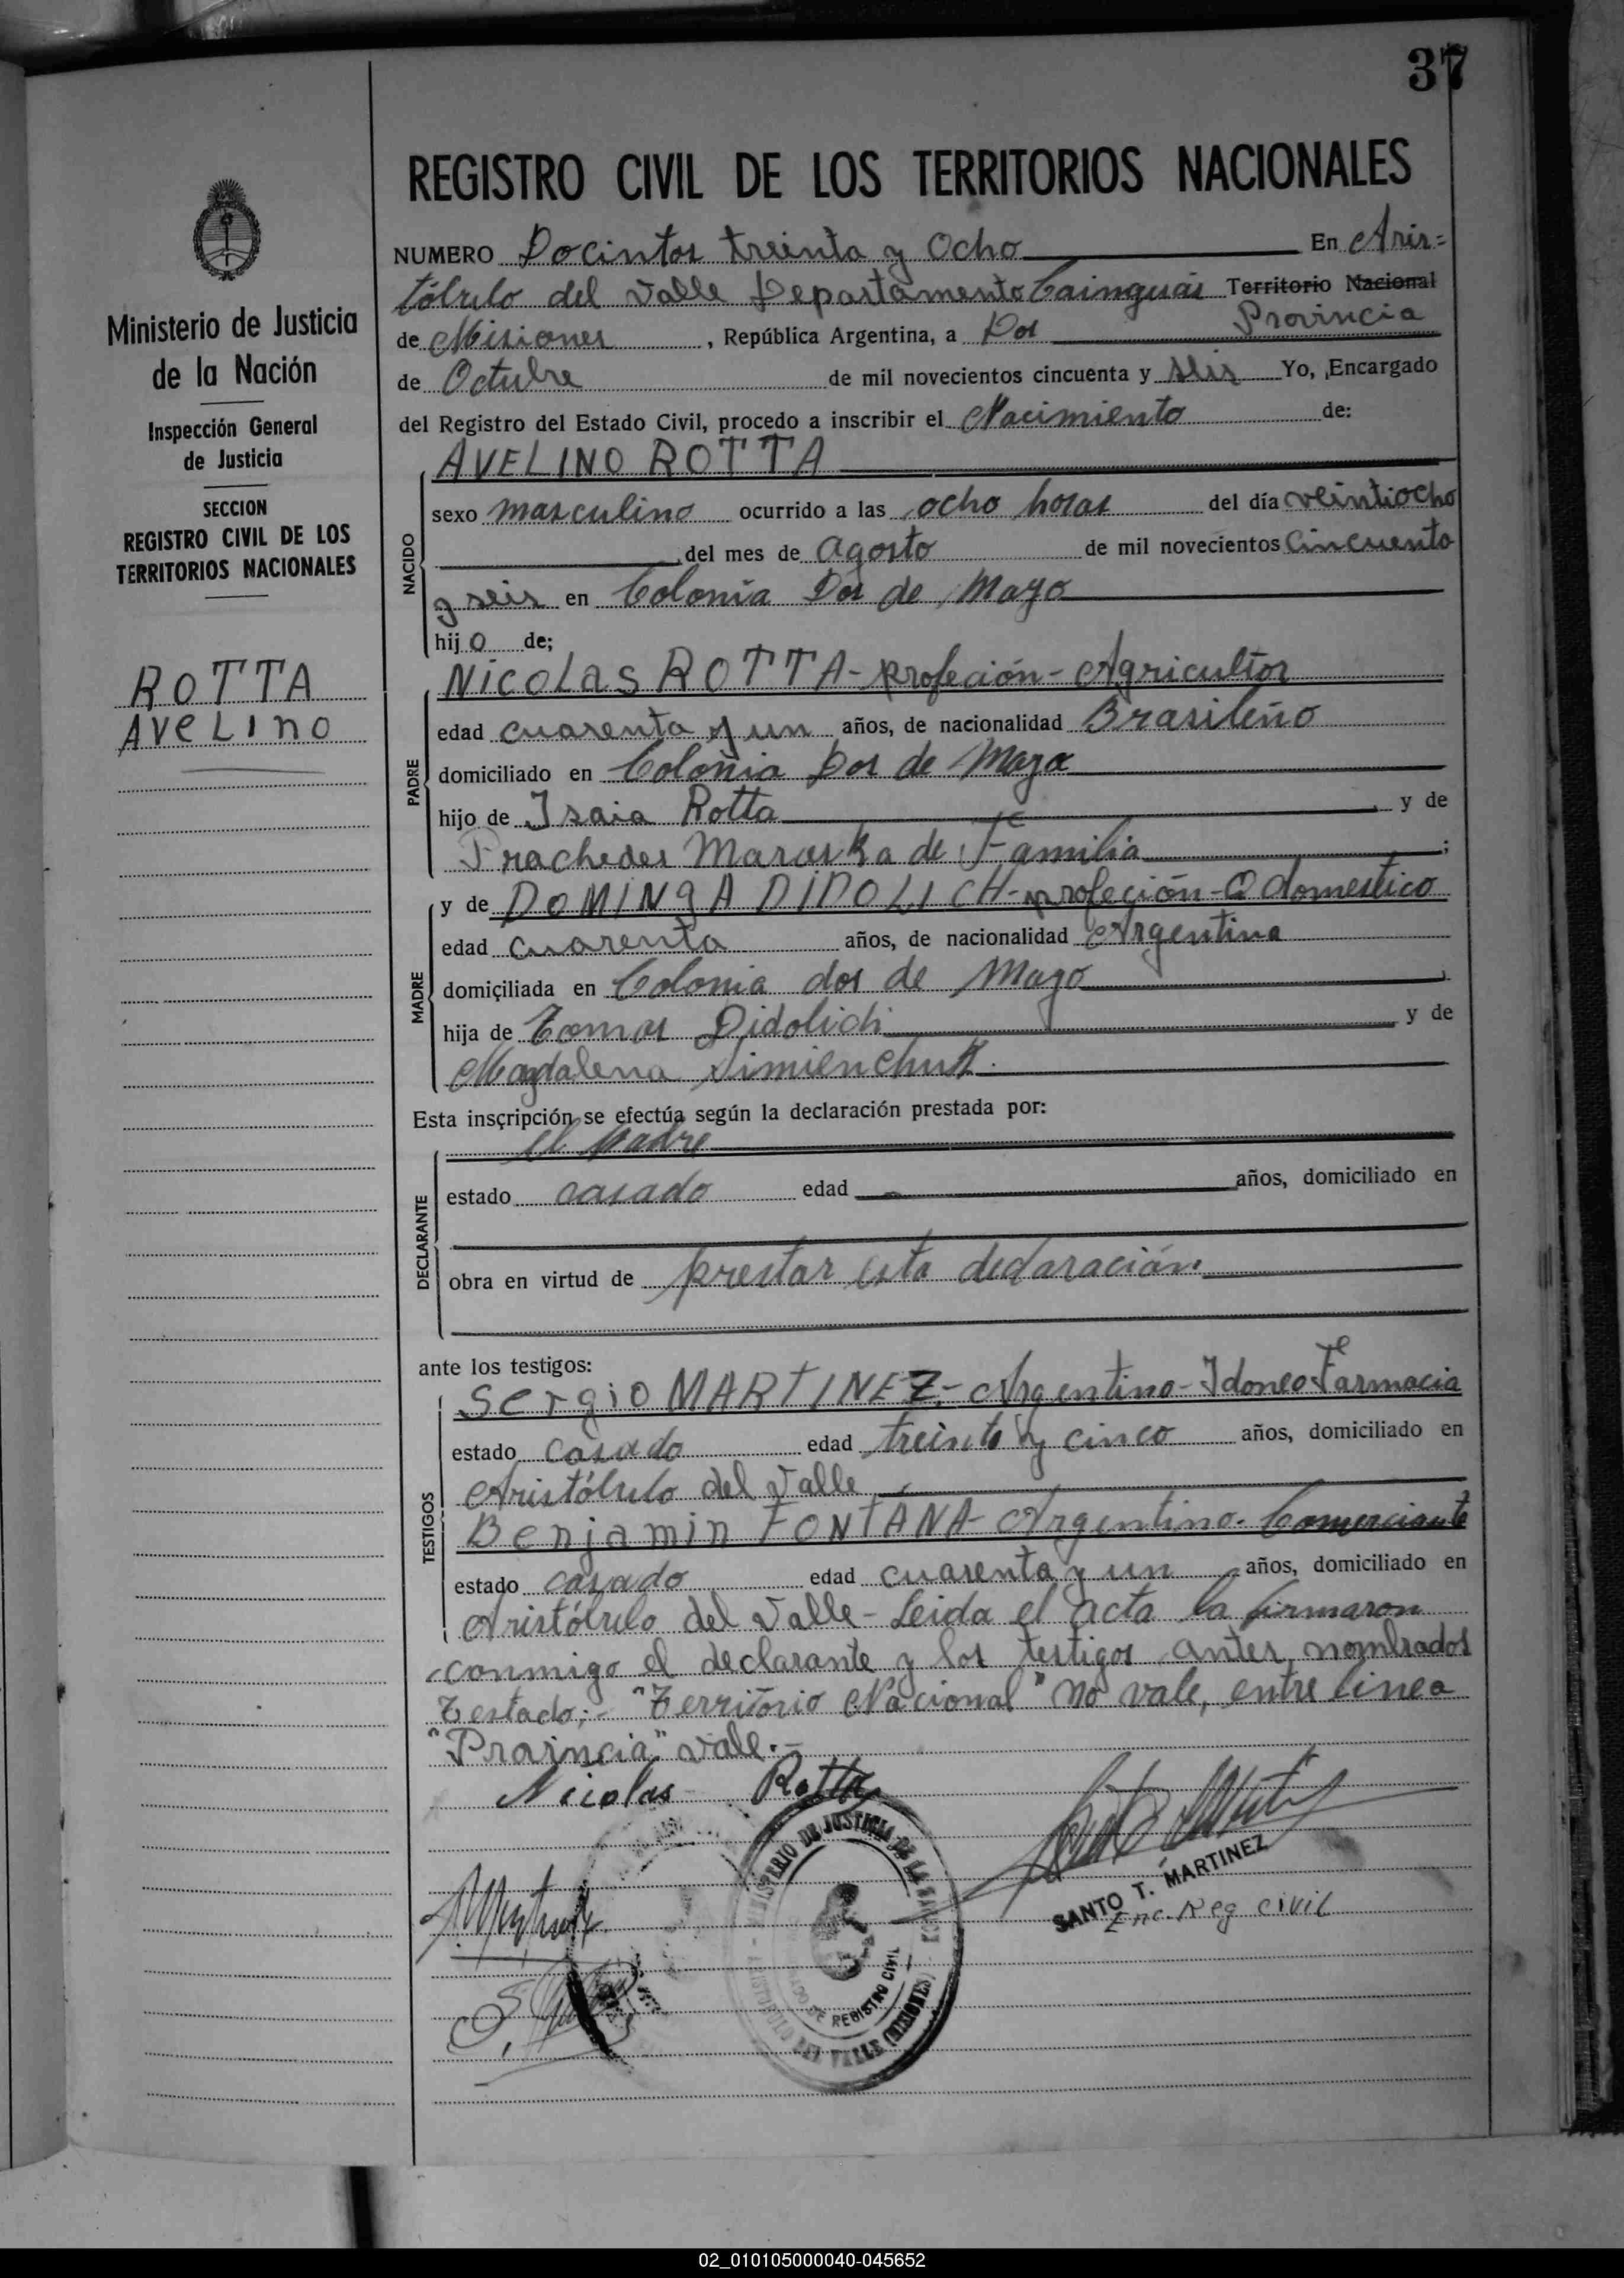 37
REGISTRO CIVIL DE LOS TERRITORIOS NACIONALES
NUMERO Docintos treinta y Ocho En Aris=
tóbulo del Valle Departamento Cainguás Territorio Nacional
Provincia
de Misiones, República Argentina, a Dos
de Octubre de mil novecientos cincuenta y seis Yo, Encargado
del Registro del Estado Civil, procedo a inscribir el Nacimiento de:
AVELINO ROTTA
NACIDO
sexo masculino ocurrido a las ocho horas del día veintiocho
del mes de agosto de mil novecientos Cincuenta
y seis en Colonia Dos de Mayo
hijo de;
PADRE
NicoLas ROTTA - profeción - Agricultor
edad cuarenta y un años, de nacionalidad Brasileño
domiciliado en Colonia Dos de Mayo
hijo de Isaia Rotta y de
Prachedes Maruska de Familia;
MADRE
y de DOMINgA DIDOLICH - profeción - Q domestico
edad cuarenta años, de nacionalidad Argentina
domiciliada en Colonia dos de Mayo
hija de Tomas Didolich y de
Magdalena Simienchuk.
Esta inscripción se efectúa según la declaración prestada por:
DECLARANTE
el padre
estado casado edad años, domiciliado en
obra en virtud de prestar esta declaración.
ante los testigos:
TESTIGOS
Sergio MARTINEZ - Argentino - Idoneo Farmacia
estado casado edad treinta y cinco años, domiciliado en
Aristóbulo del Valle
Benjamin FONTANA - Argentino - Comerciante
estado casado edad cuarenta y un años, domiciliado en
Aristóbulo del Valle - Leida el acta la firmaron
conmigo el declarante y los testigos antes nombrados
Testado; - "Territorio Nacional" no vale, entre linea
"Provincia" vale. -
Nicolas Rotta
SANTO T. MARTINEZ
Enc. Reg civil
MINISTERIO DE JUSTICIA DE LA NACION
REGISTRO CIVIL
ARISTOBULO DEL VALLE (MISIONES)
Ministerio de Justicia
de la Nación
Inspección General
de Justicia
SECCION
REGISTRO CIVIL DE LOS
TERRITORIOS NACIONALES
ROTTA
AVeLINO
02_010105000040-045652